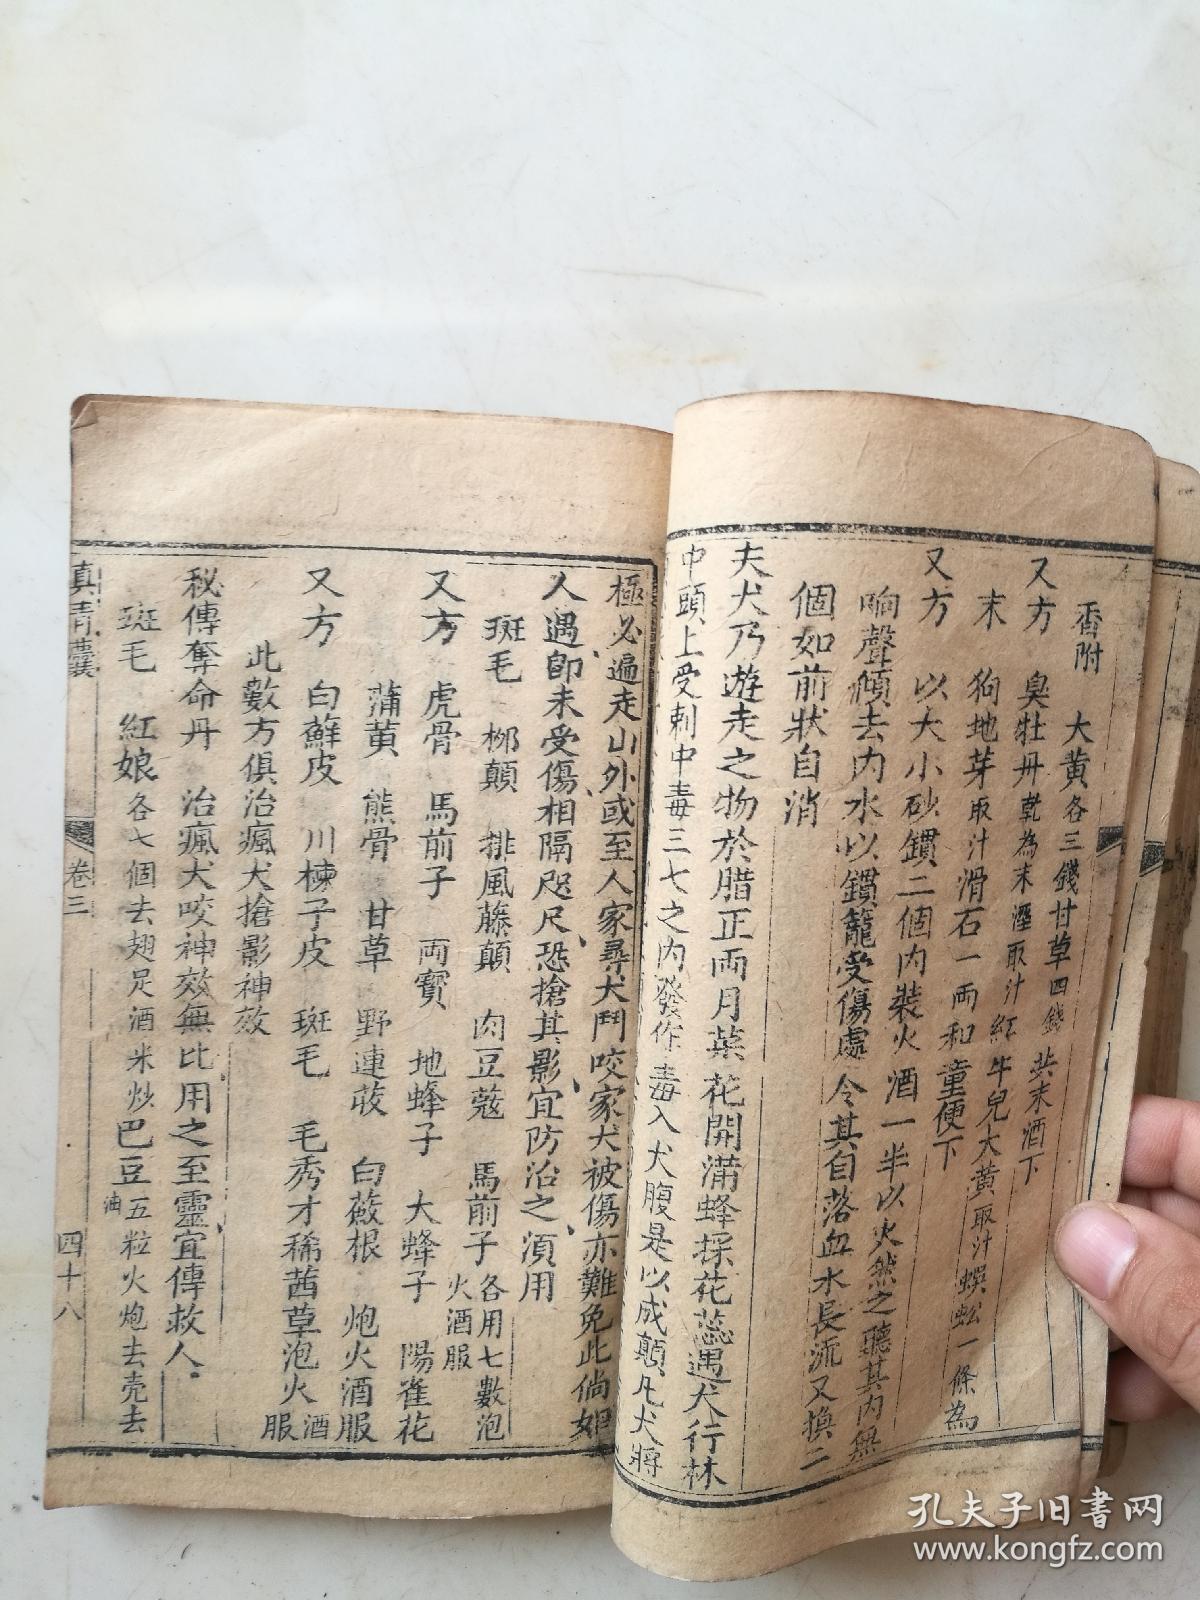 香附　大黄各三錢甘草四錢　共末酒下
又方　臭牡丹乾為末濕取汁　紅牛兒大黄取汁　蜈蚣一條為
末　狗地芽取汁滑石一両和童便下
又方　以大小砂鑵二個内裝火酒一半以火然之聽其内無
响聲傾去内水以鑵籠受傷處　令其自落血水長流又換二
個如前狀自消
夫犬乃遊走之物於腊正両月菜花開満蜂採花蕊遇犬行林
中頭上受刺中毒三七之内發作　毒入犬腹是以成顛凡犬將
極必遍走山外或至人家尋犬鬥咬家犬被傷亦難免此倘如
人遇即未受傷相隔咫尺恐搶其影宜防治之湏用
斑毛　柳顛　排風藤顛　肉豆蔻　馬前子各用七數泡火酒服
又方　虎骨　馬前子　両寳　地蜂子　大蜂子　陽雀花
蒲黄　熊骨　甘草　野連　白蘞根　炮火酒服
又方　白蘚皮　川楝子皮　斑毛　毛秀才稀茜草泡火酒服
此數方俱治瘋犬搶影神效
秘傳奪命丹　治瘋犬咬神效無比用之至靈宜傳救人
斑毛　紅娘各七個去翅足酒米炒巴豆五粒火炮去壳去油
真青囊　卷三　四十八
孔夫子旧書网
www.kongfz.com